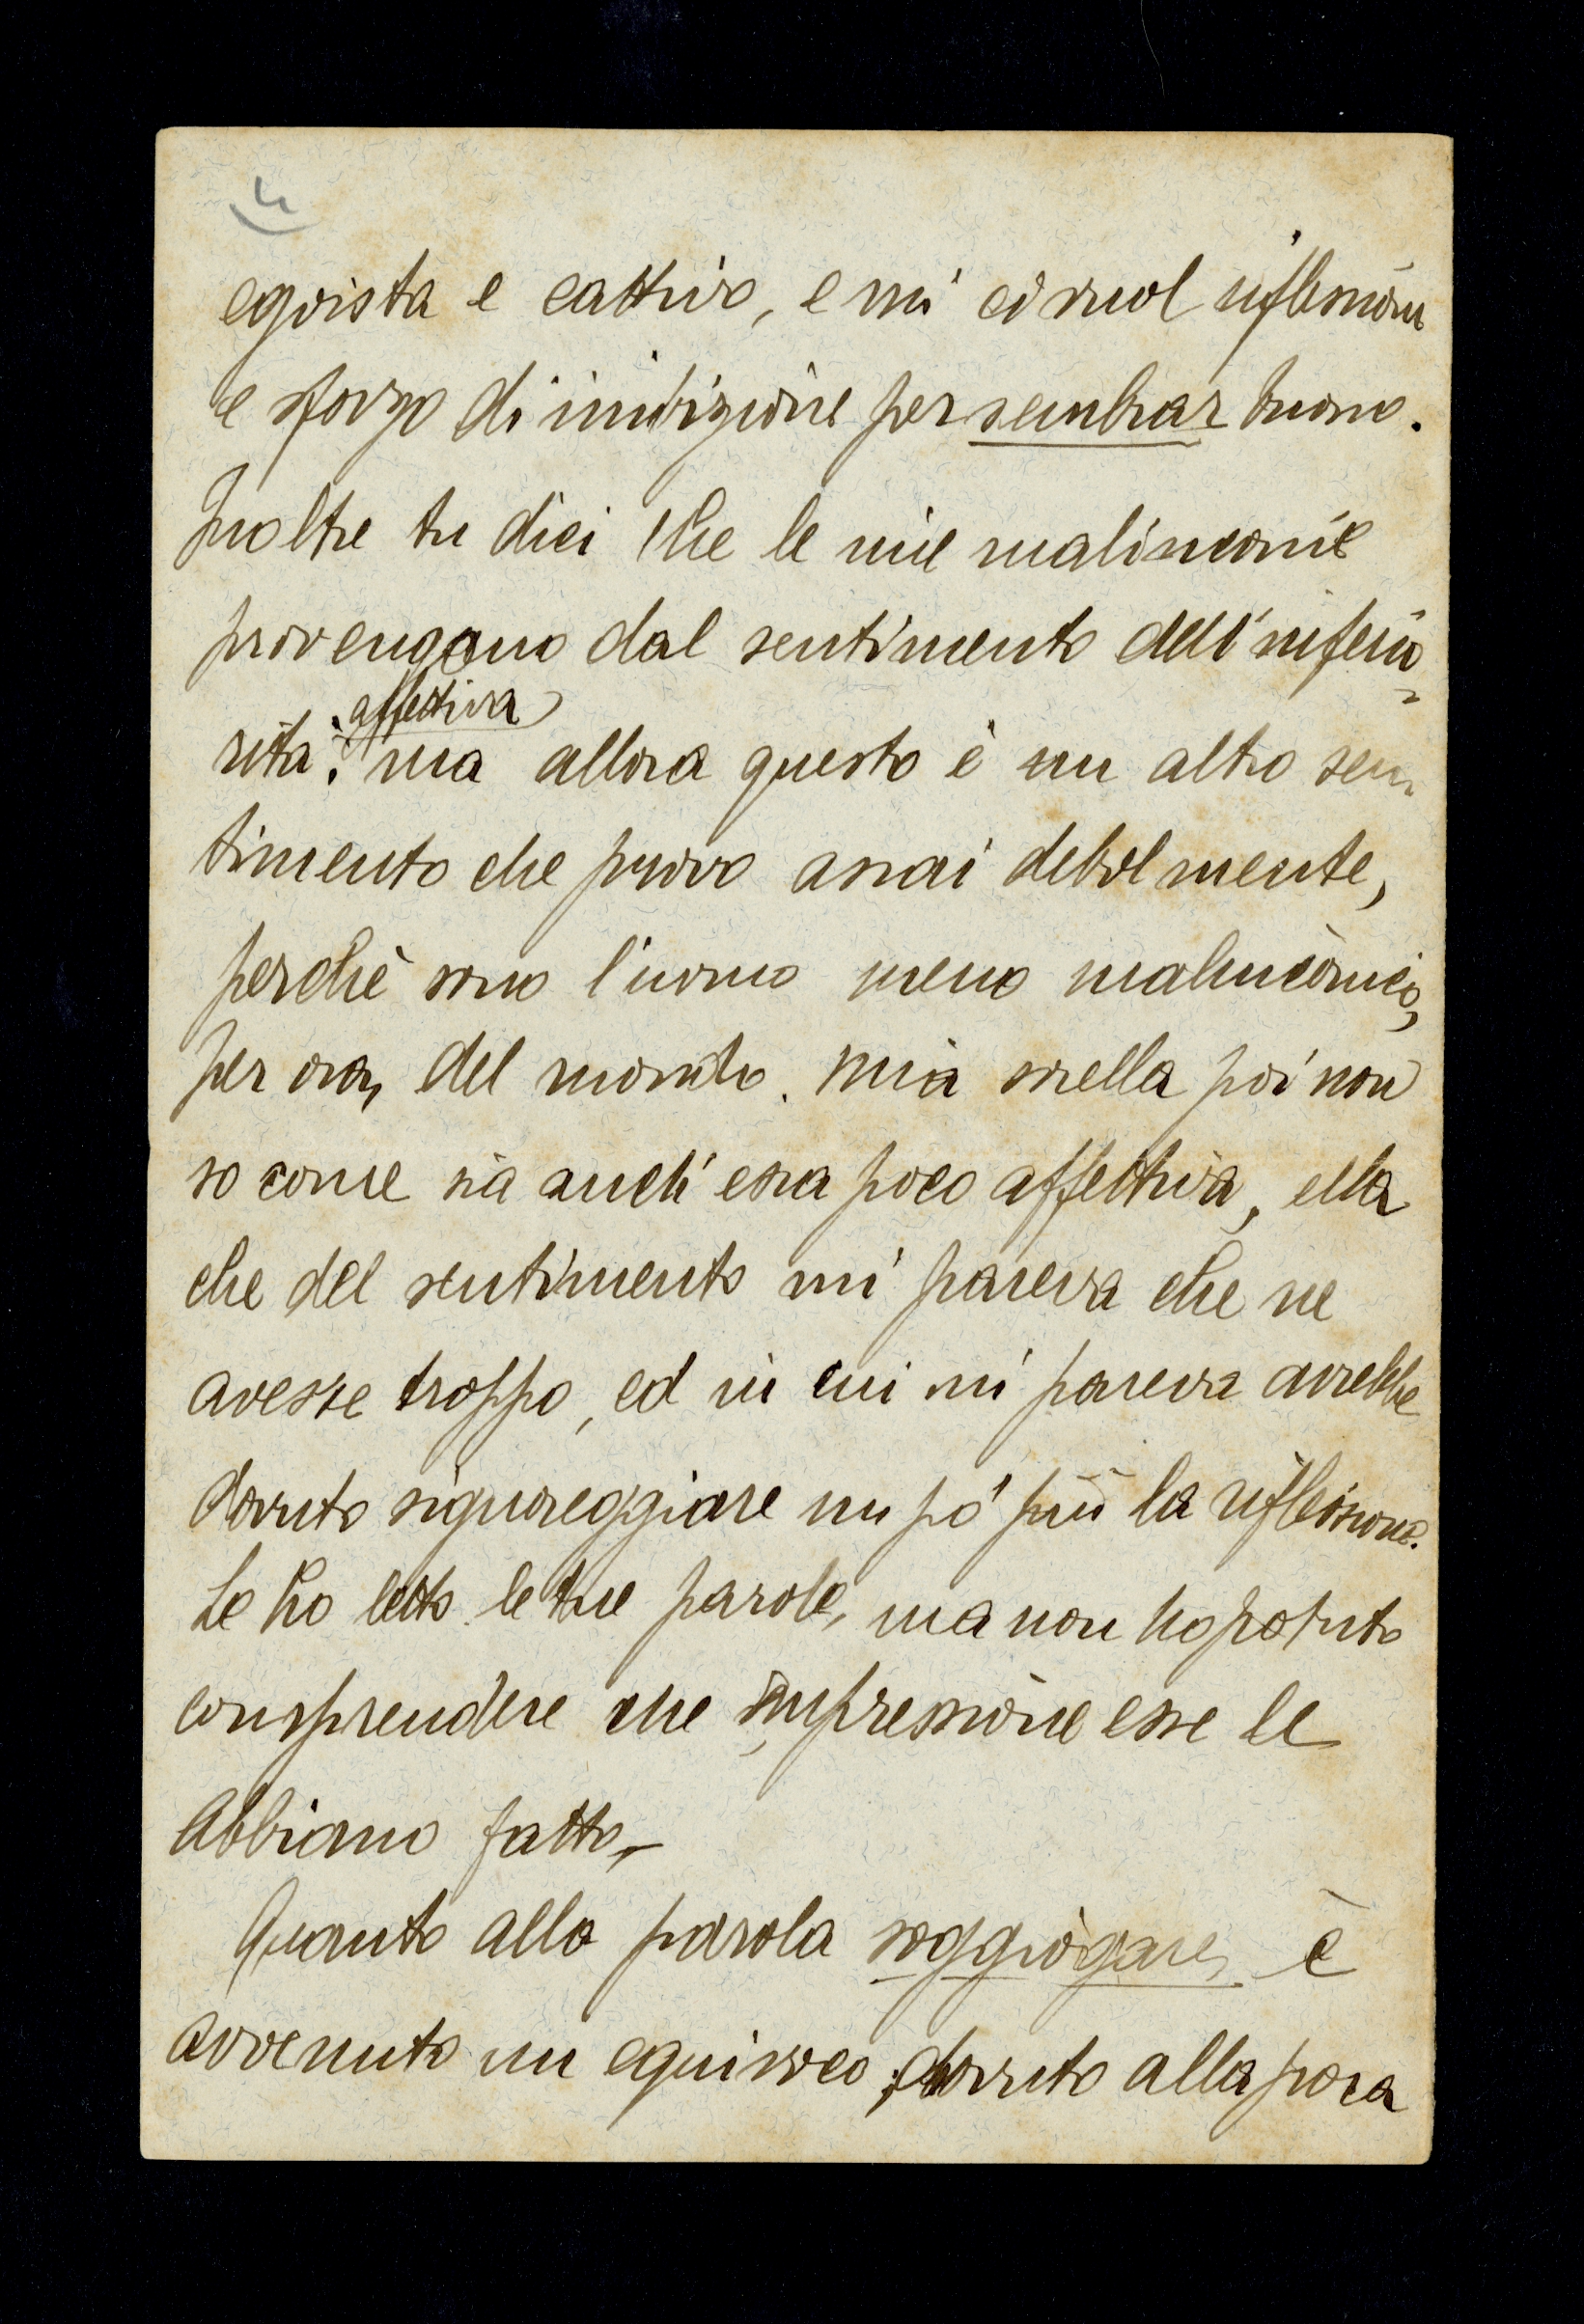 4
egoista e cattivo, e mi ci vuol riflession
e sforzo di inibizione per sembrar buono.
Inoltre tu dici che le mie malinconie
provengano dal sentimento dell'inferio-
rità affettiva: ma allora questo è un altro sen-
timento che provo assai debolmente,
perchè sono l'uomo meno malinconico,
per ora, del mondo. Mia sorella poi non
so come sia anch'essa poco affettiva, ella
che del sentimento mi pareva che ne
avesse troppo, ed in cui mi pareva avrebbe
dovuto signoreggiare un pò più la riflessione.
Le ho letto le tue parole, ma non ho potuto
comprendere che impressione esse le
abbiano fatto.-
Quanto alla parola soggiogare, è
avvenuto un equivoco, dovuto alla poca